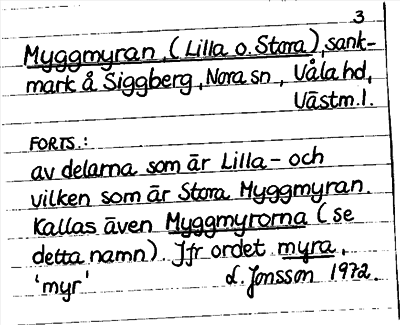 3
Myggmyran, (Lilla o. Stora), sank-
mark å Siggberg, Nora sn, Våla hd,
Västm.l.
FORTS.:
av delarna som är Lilla- och
vilken som är Stora Myggmyran.
Kallas även Myggmyrorna (se
detta namn). Jfr ordet myra,
'myr'
L. Jonsson 1972.